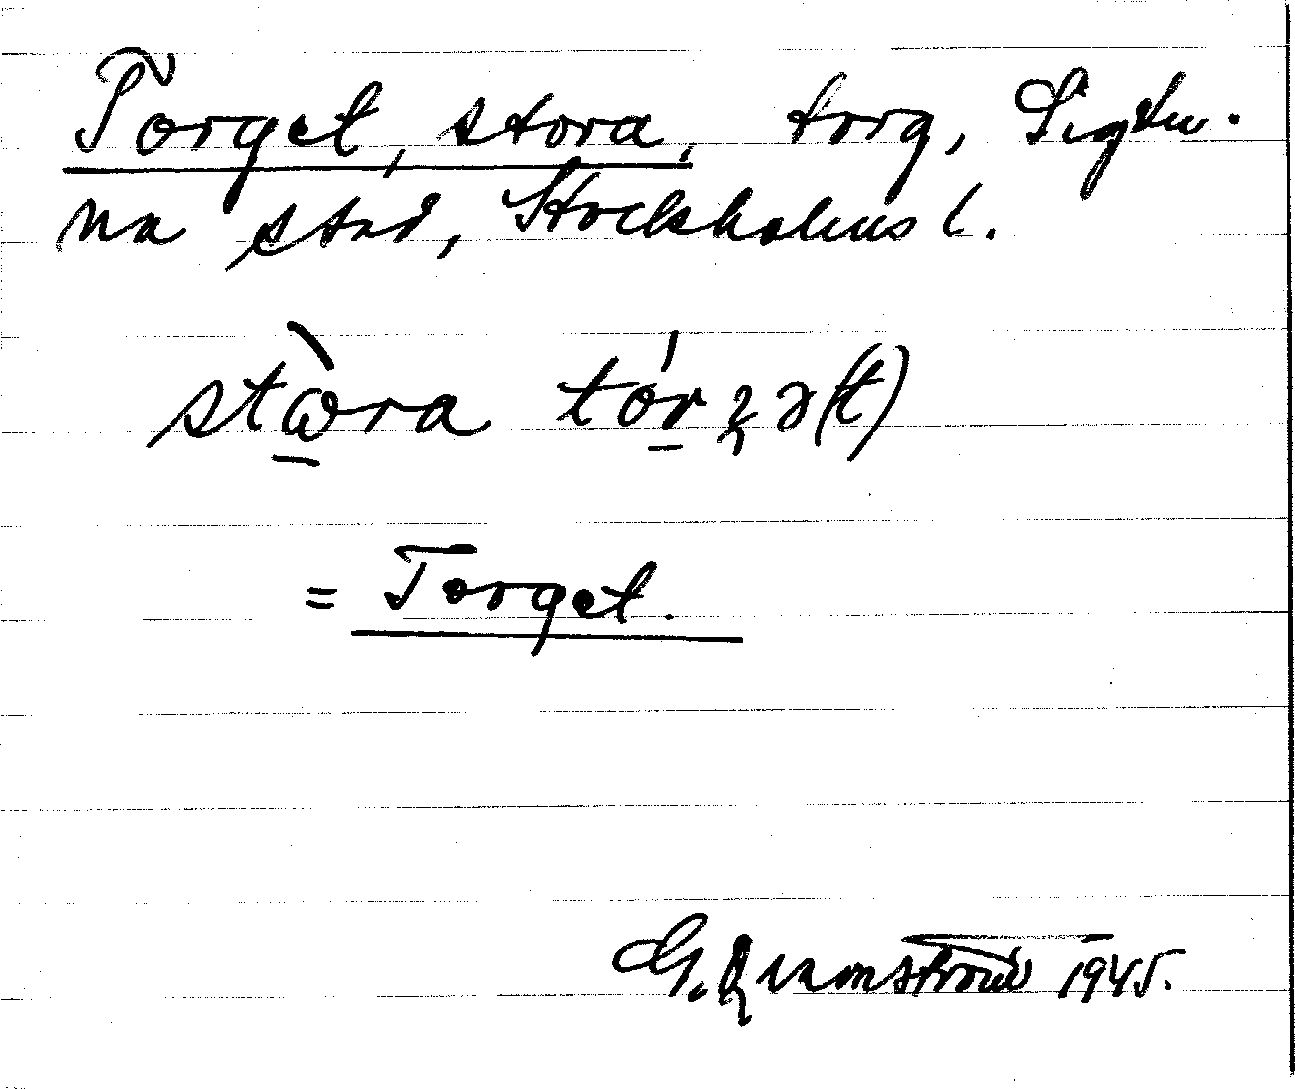 Torget, stora, torg, Sigtu-
na stad, Stockholms l.
stὼra tórʒə(t)
= Torget.
G. Qvarnström 1945.